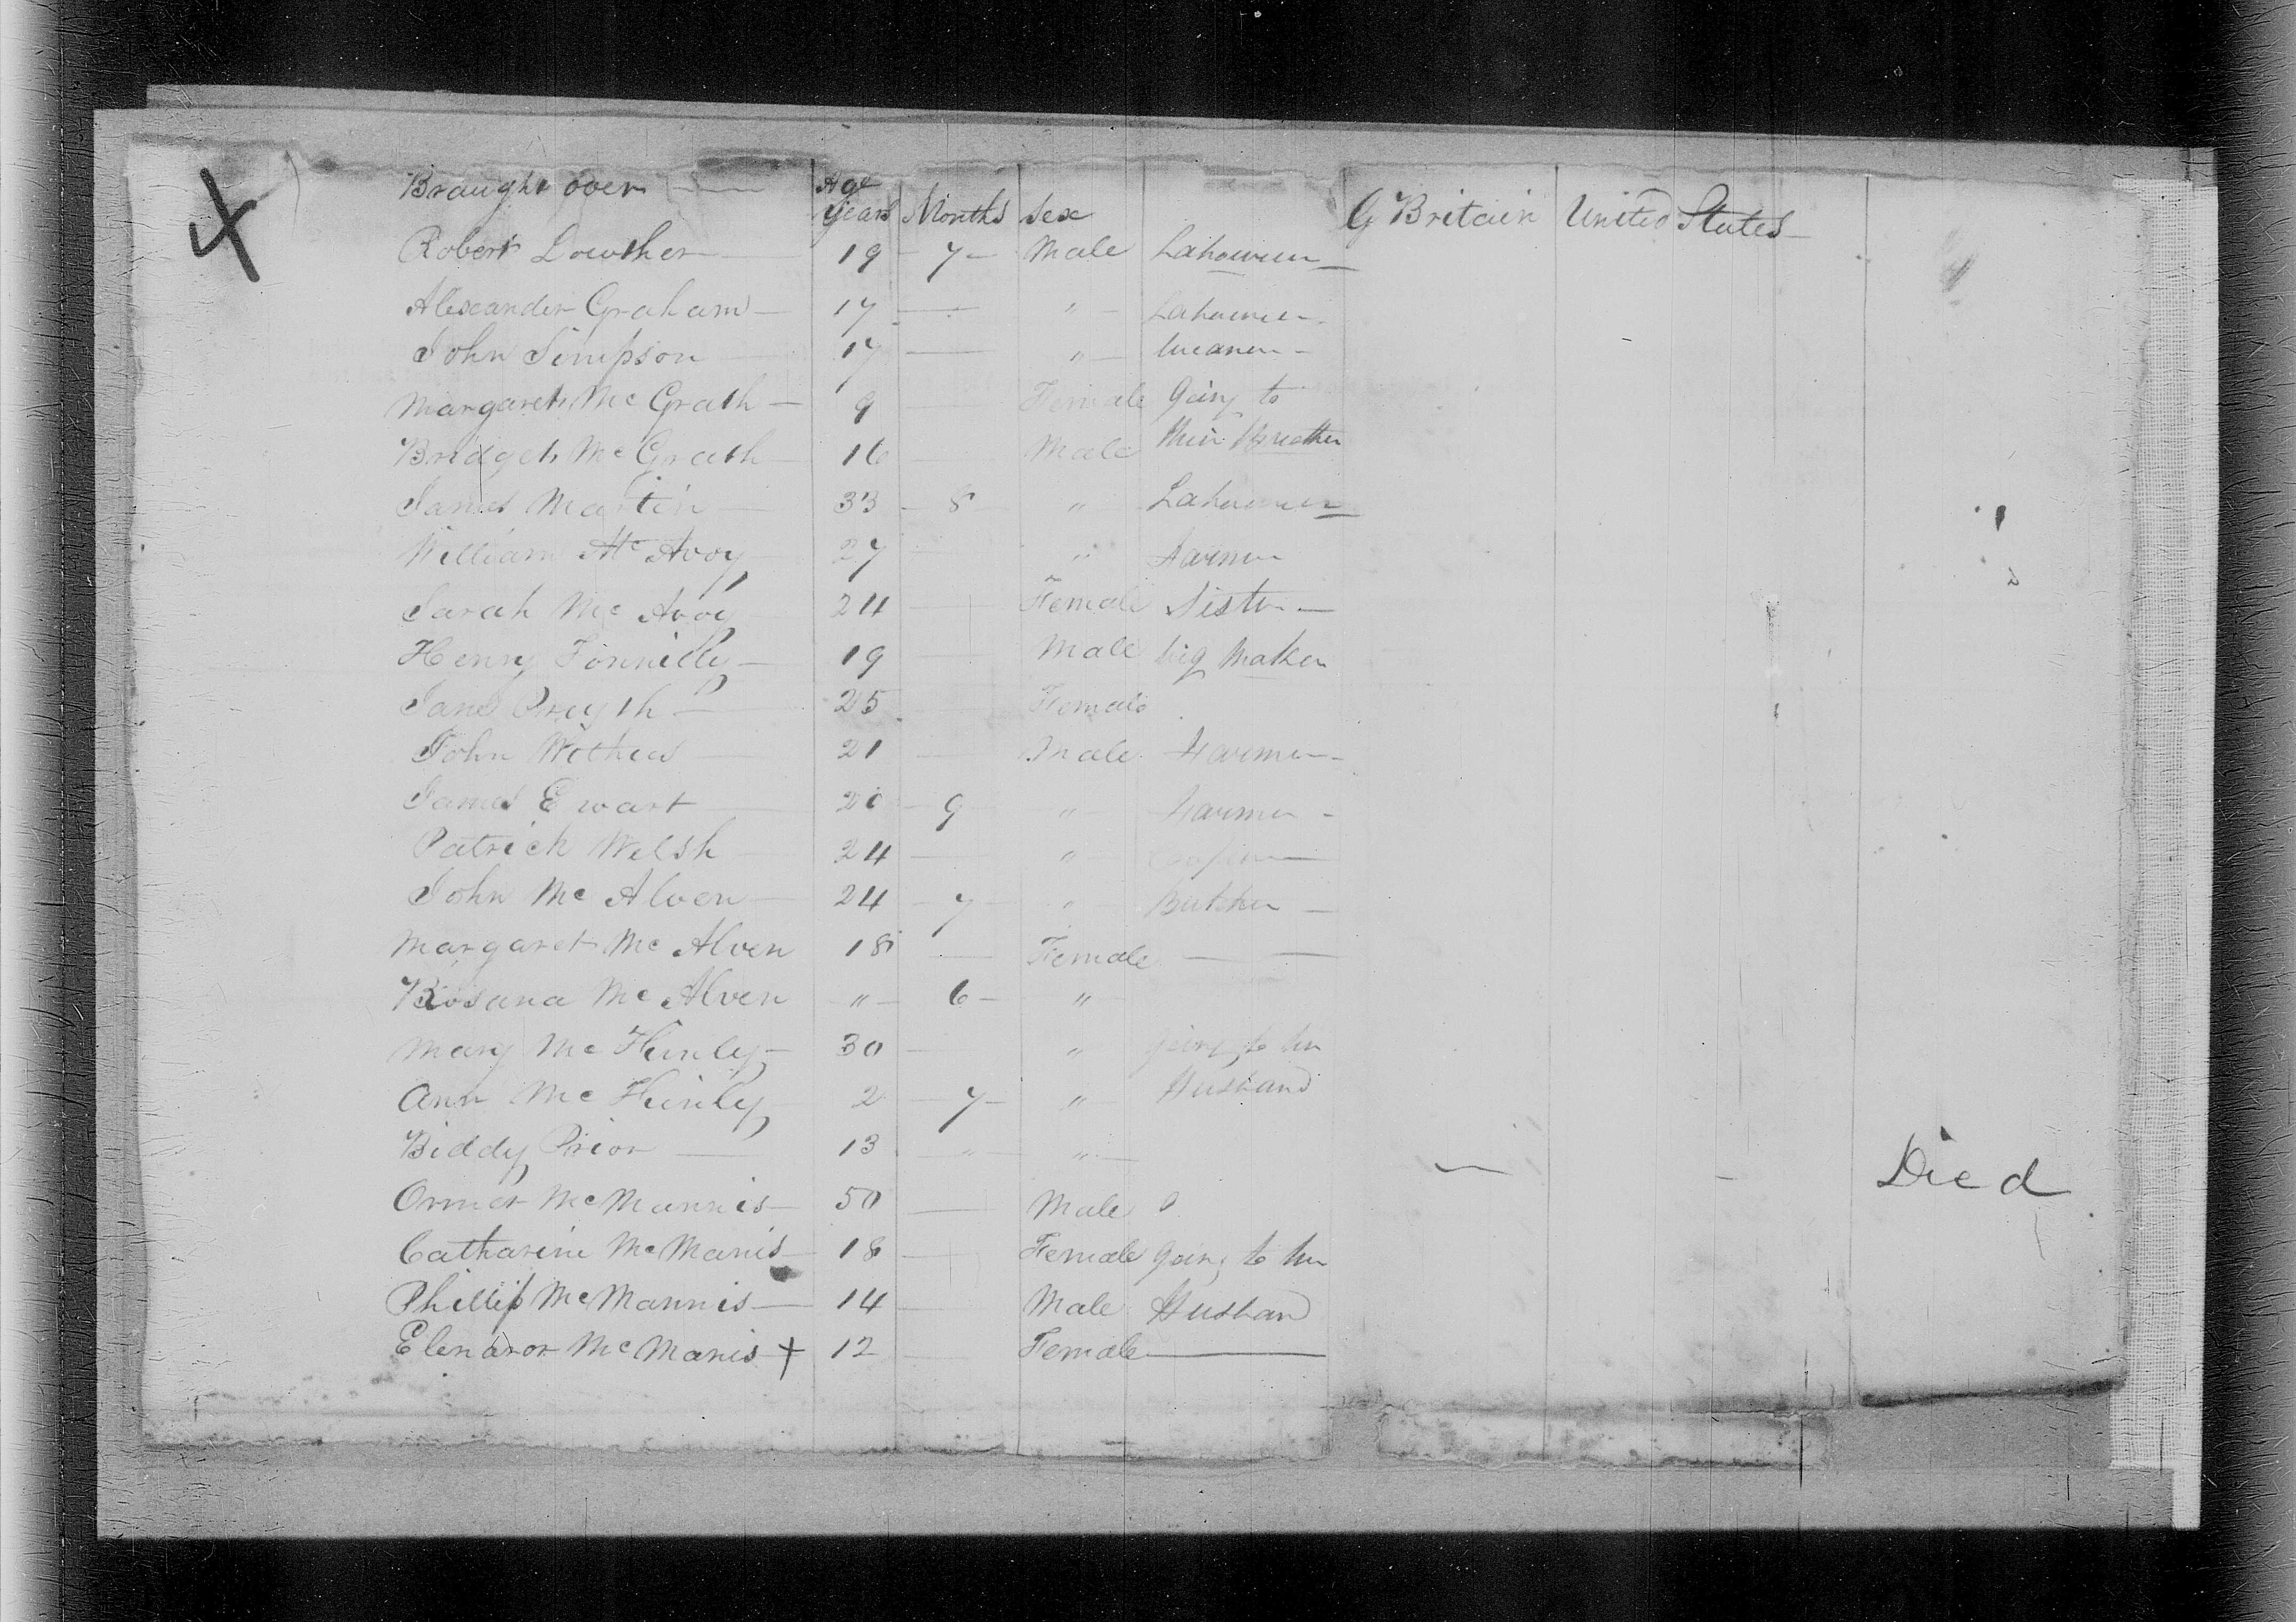 Braught over Age
years Months Sex G Britain United States
Robert Lowther 19 7 Male Labourer
Alexander Graham 17 " Labourer
John Simpson 17 "
Margaret Mc Grath 9 Female Going to
Bridget Mc Grath 16 Male their Brother
James Martin 33 8 " Labourer
William Mc Avoy 27 " Farmer
Sarah Mc Avoy 24 Female Sister
Henry 19 Male wig Maker
Jane 25 Female
John 21 Male Farmer
James Ewart 20 9 " Farmer
Patrick Welsh 24 "
John Mc Alven 24 7 " Butcher
Margaret Mc Alven 18 Female
Rosana Mc Alven " 6 "
Mary Mc 30 " going to her
Ann Mc 2 7 " Husband
Biddy Prior 13 " " Died
Mc Mannis 50 Male
Catharine Mc Manis 18 Female going to her
Phillip Mc Mannis 14 Male Husband
Elenaror Mc Manis + 12 Female